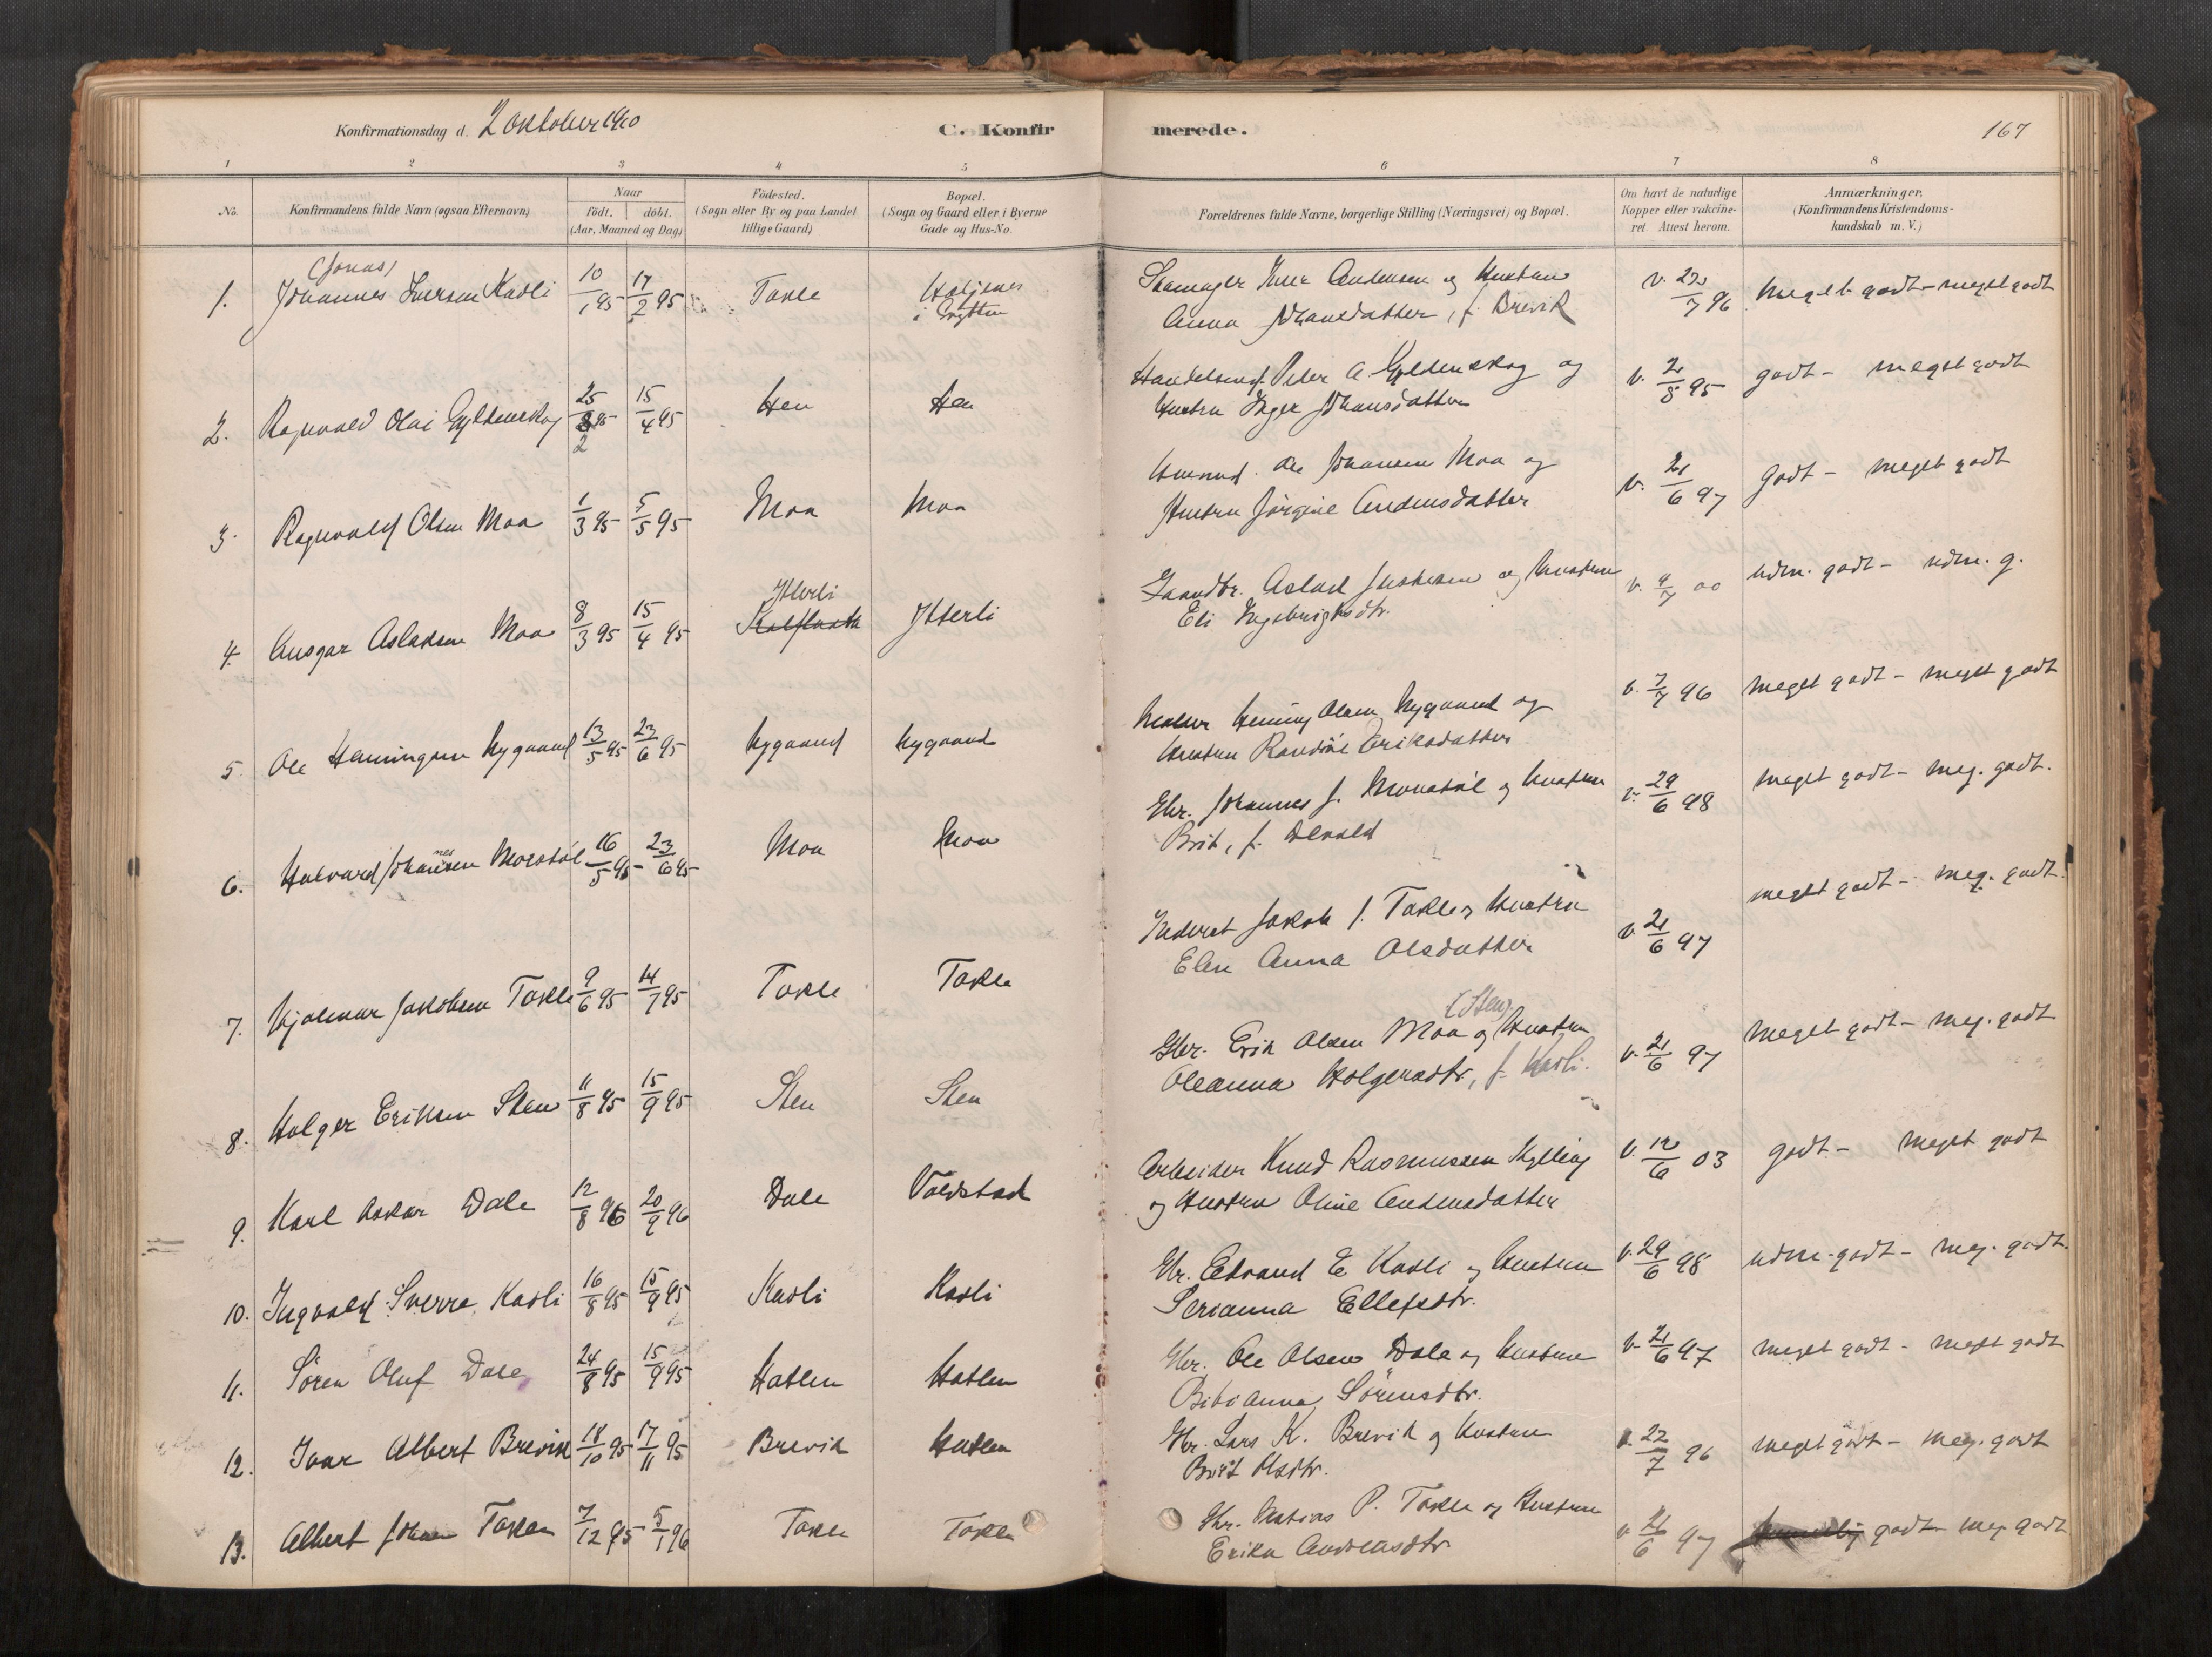 Konfirmationsdag d. 2 Oktober 1910
C. Konfirmerede.
167
1 2 3 4 5 6 7 8
No.
Konfirmandens fulde Navn (ogsaa Efternavn)
Naar
født. | döbt.
(Aar, Maaned og Dag)
Födested.
(Sogn eller By og paa Landet
tillige Gaard)
Bopæl.
(Sogn og Gaard eller i Byerne
Gade og Hus-No.
Forældrenes fulde Navne, borgerlige Stilling (Næringsvei) og Bopæl.
Om havt de naturlige
Kopper eller vakcine-
ret. Attest herom.
Anmærkninger.
(Konfirmandens Kristendoms-
kundskab m. V.)
(Jonas)
1. Johannes Iversen Kavli 10/1 95 17/2 95 Tokle
i Grytten
Skomager Iver Andersen og Hustru v. 22/7 96 Meget godt - meget godt
Anna Johansdatter, f. Brevik
2. Ragnvald Olai Gyldenskog 25/2 95 15/4 95 Hen Hen
Handelsmd. Peter A. Gyldenskog og v. 2/8 95 godt - meget godt
Hustru Inger Johansdatter
3. Ragnvald Olsen Moa 1/3 95 5/5 95 Moa Moa
Husmd. Ole Johansen Moa og v. 21/6 97 Godt - meget godt
Hustru Jörgine Andersdatter
Ytterli
4. Ansgar Aslaksen Moa 8/3 95 15/4 95 Ytterli
Gaardbr. Aslak Justesen og Hustru v. 9/7 00 udm. godt - udm. g.
Eli Ingebrigtsdtr.
5. Ole Henningsen Nygaard 13/5 95 23/6 95 Nygaard Nygaard
Maler Henning Olsen Nygaard og v. 7/7 96 meget godt - meget godt
Hustru Randine Eriksdatter
6. Halvard Johannesen Morstøl 16/5 95 23/6 95 Moa Moa
Gbr. Johannes J. Monstøl og Hustru v. 29/6 98 meget godt - meg. godt.
Brit, f. Devold
7. Hjalmar Jakobsen Tokle 9/6 95 14/7 95 Tokle Tokle
Inderst Jakob J. Tokle og Hustru v. 21/6 97 meget godt - meg. godt.
Elen Anna Olsdatter
(Sten)
8. Holger Eriksen Sten 11/8 95 15/9 95 Sten Sten
Gbr. Erik Olsen Moa og Hustru v. 21/6 97 Meget godt - meg. godt
Oleanna Holgersdtr, f. Kavli.
9. Karl Oskar Dale 12/8 96 20/9 96 Dale Voldstad
Arbeider Knud Rasmussen Kylling v. 12/6 03 godt - Meget godt
og Hustru Oline Andersdatter
10. Ingvald Sverre Kavli 16/8 95 15/9 95 Kavli Kavli
Gbr. Edvard E Kavli og Hustru v. 29/6 98 udm. godt - meg. godt.
Serianna Ellefsdtr.
11. Sören Oluf Dale 24/8 95 15/9 95 Hatlen Hatlen
Gbr. Ole Olsen Dale og Hustru v. 21/6 97 meget godt - meget godt
Bibianna Sörensdtr.
12. Ivar Albert Brevik 18/10 95 17/11 95 Brevik Hatlen
Gbr. Lars K. Brevik og Hustru v. 22/7 96 meget godt - meg. godt
Brit Olsdtr.
13. Albert Johan Tokle 7/12 95 5/1 96 Tokle Tokle
Gbr. Matias P. Tokle og Hustru v. 21/6 97 godt - meg. godt
Erika Andreasdtr